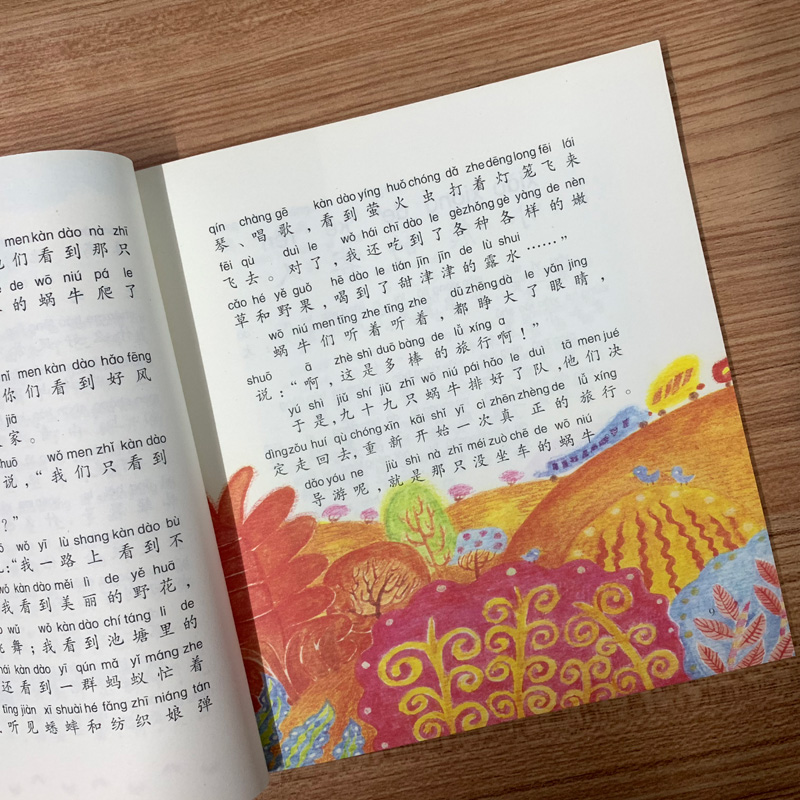 men kàn dào nà zhī
们 看 到 那 只
de wō niú pá le
的 蜗 牛 爬 了
nǐ men kàn dào hǎo fēng
你 们 看 到 好 风
jiā
家 。
shuō wǒ men zhǐ kàn dào
说 ，“ 我 们 只 看 到
？”
wǒ yī lù shang kàn dào bù
：“我 一 路 上 看 到 不
wǒ kàn dào měi lì de yě huā
我 看 到 美 丽 的 野 花 ，
wǔ wǒ kàn dào chí táng lǐ de
舞 ；我 看 到 池 塘 里 的
hái kàn dào yī qún mǎ yǐ máng zhe
还 看 到 一 群 蚂 蚁 忙 着
tīng jiàn xī shuài hé fǎng zhī niáng tán
听 见 蟋 蟀 和 纺 织 娘 弹
qín chàng gē kàn dào yíng huǒ chóng dǎ zhe dēng long fēi lái
琴 、唱 歌 ，看 到 萤 火 虫 打 着 灯 笼 飞 来
fēi qù duì le wǒ hái chī dào le gè zhǒng gè yàng de nèn
飞 去 。对 了 ，我 还 吃 到 了 各 种 各 样 的 嫩
cǎo hé yě guǒ hē dào le tián jīn jīn de lù shui
草 和 野 果 ，喝 到 了 甜 津 津 的 露 水 ……”
wō niú men tīng zhe tīng zhe dū zhēng dà le yǎn jing
蜗 牛 们 听 着 听 着 ，都 睁 大 了 眼 睛 ，
shuō ā zhè shì duō bàng de lǚ xíng a
说 ：“ 啊 ，这 是 多 棒 的 旅 行 啊 ！”
yú shì jiǔ shí jiǔ zhī wō niú pái hǎo le duì tā men jué
于 是 ，九 十 九 只 蜗 牛 排 好 了 队 ，他 们 决
dìng zǒu huí qù chóng xīn kāi shǐ yī cì zhēn zhèng de lǚ xíng
定 走 回 去 ，重 新 开 始 一 次 真 正 的 旅 行 。
dǎo yóu ne jiù shì nà zhī méi zuò chē de wō niú
导 游 呢 ，就 是 那 只 没 坐 车 的 蜗 牛 。
9